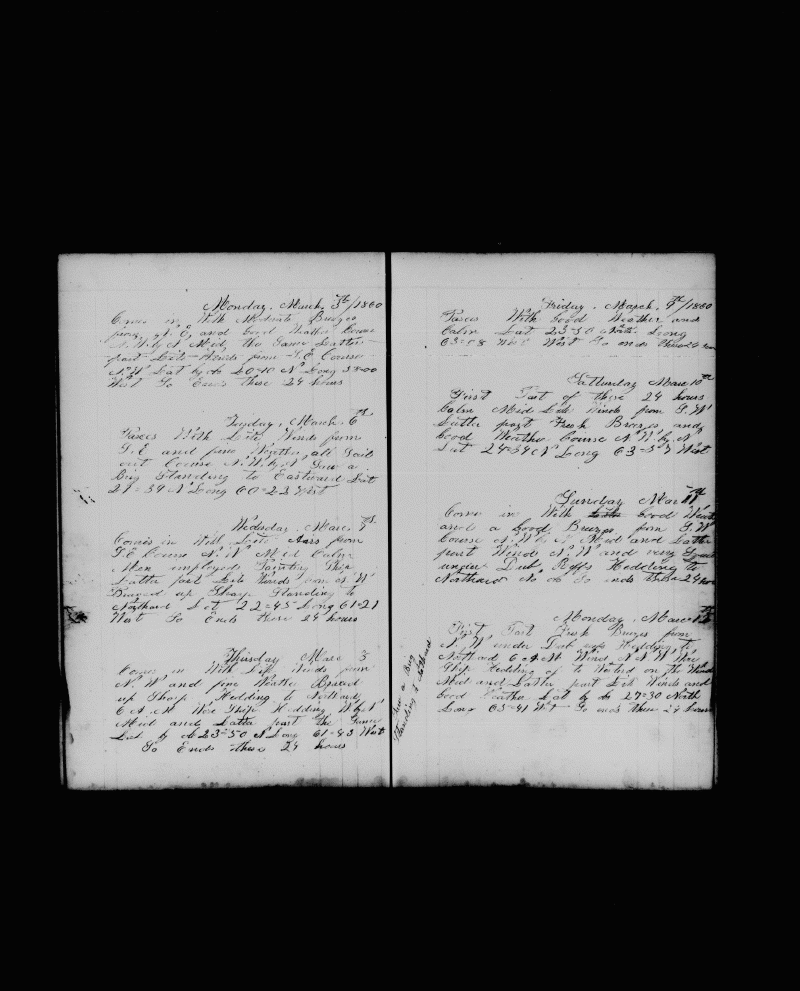 Monday. March. 5th/1860
Comes in With Moderate Breezes
from N. E, and Good Weather Course
N. W. by N Mid, the Same Latter
part Lite Winds from S. E Course
N. W Lat by do 20=10 N Long 58=00
West So Ends these 24 hours
Tuesday, March. 6th
Passes With Lite Winds from
S. E and fine Weather all Sail
out Course N. W. by N Saw a
Brig Standing to Eastward Lat
21=34 N Long 60=23 West
Wedsday. Marc. 7th
Comes in With Lite Aars from
S. E Course N. W Mid Calm
Men employed Painting Ship
Latter part Lite Winds from N W
Braced up Sharp Standing to
Northard Lat 22=45 Long 61=21
West So Ends these 24 hours
Thirsday Marc 8
Comes in With Lite Winds from
N. W and fine Weather Braced
up Sharp Hedding to Northard,
6 A. M Wore Ship Hedding W by N
Mid and Latter part the Same
Lat by do 23=50 N Long 61=43 West
So Ends these 24 hours
Saw a Brig
Standing to Eastward
Friday. March. 9th/1860
Passes With Good Weather and
Calm Lat 23=50 North Long
63=08 West So ends these 24
Satturday Marc 10th
First Part of these 24 hours
Calm Mid Lite Winds from S. W
Latter part Fresh Breezes and
Good Weather Course N. W. by N
Lat 24=34 N Long 63=37 West
Sunday Mar 11th
Comes in With Good
and a Good Breeze from S. W
Course N. W by N Mid and Latter
part Wind N. W and very
under Dub. Reffs Hedding to
Northard No do So ends these 24
Monday, Marc 12
First Part Fresh Breezes from
N. W under Dub Hedding to
Northard 6 A. M Wind N. N. W Wore
Ship Hedding of to Westerd on the Wind
Mid and Latter part Lite Winds and
Good Weather Lat by do 27=30 North
Long 65=41 West So ends these 24 hours